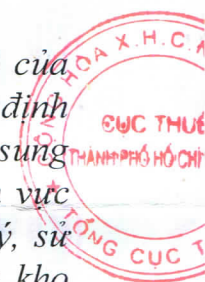 của
định
sung
vực
ý, sử
kho
HÒA X.H.C.N
CỤC THUẾ
THÀNH PHỐ HỒ CHÍ
TỔNG CỤC T